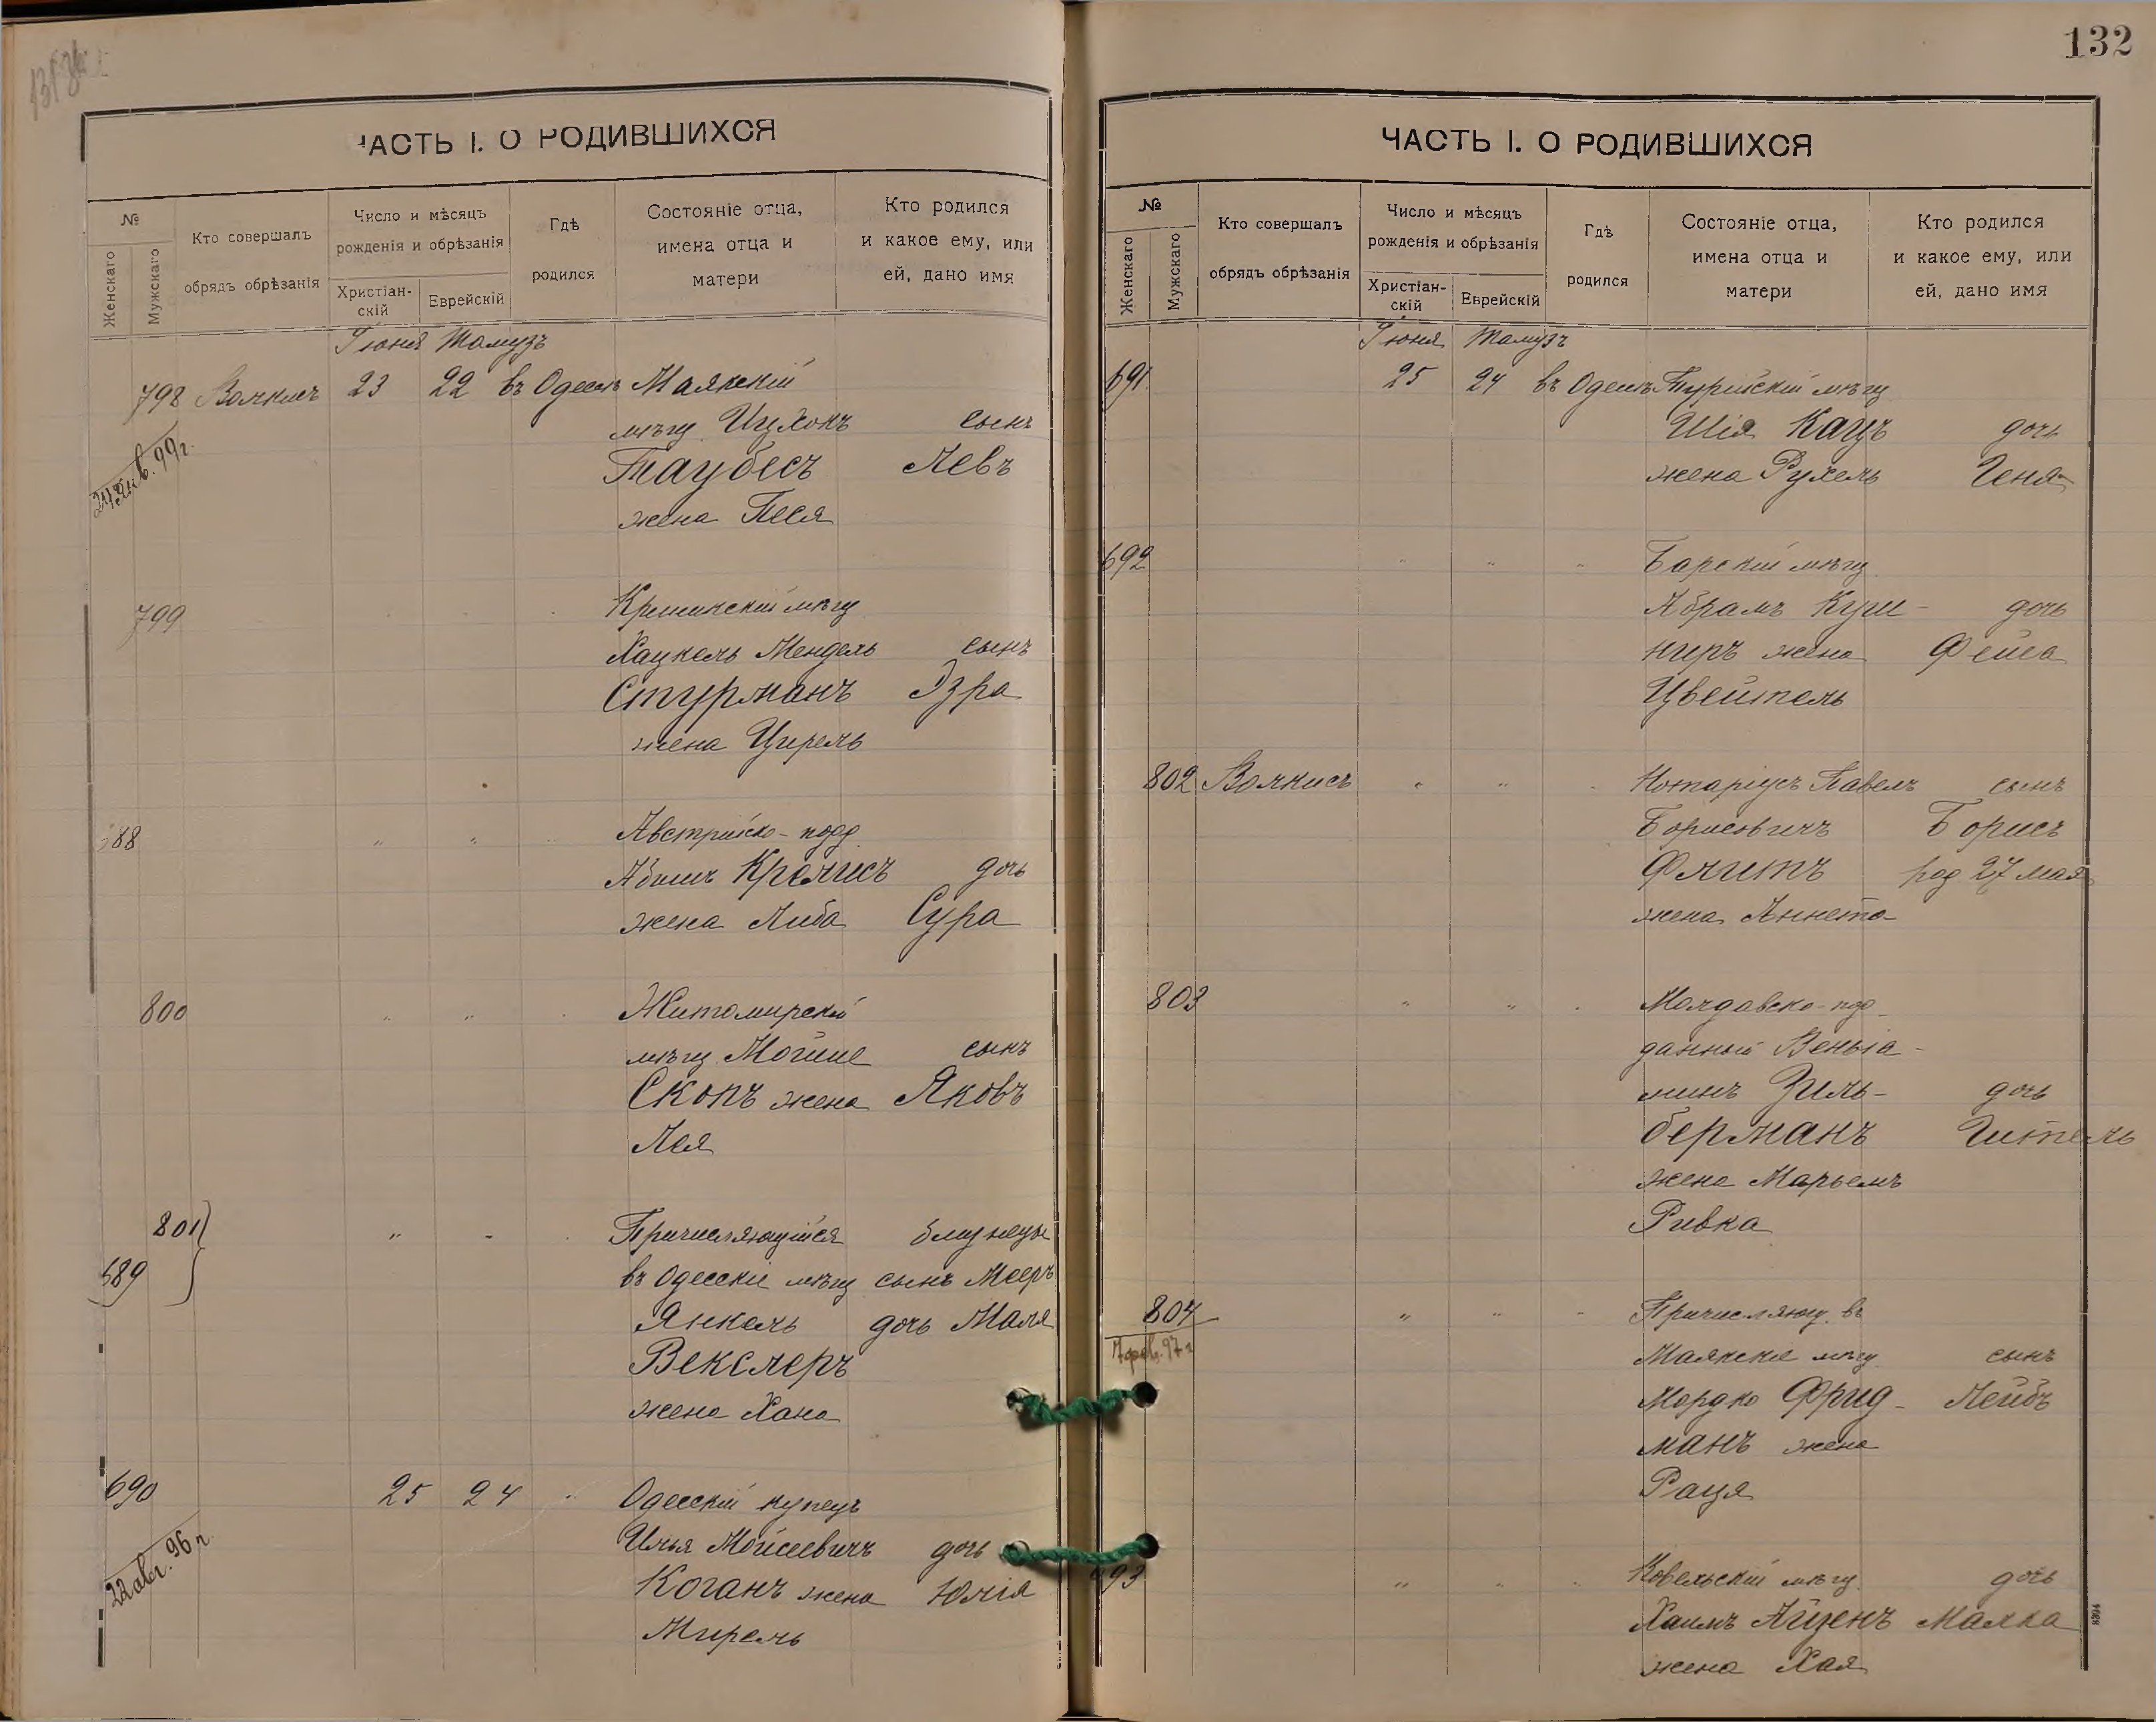 132
ЧАСТЬ I. О РОДИВШИХСЯ
№
Женскаго
Мужскаго
Кто совершалъ
обрядъ обрѣзанія
Число и мѣсяцъ
рожденія и обрѣзанія
Христіан-
скій
Еврейскій
Гдѣ
родился
Состояніе отца,
имена отца и
матери
Кто родился
и какое ему, или
ей, дано имя
Іюня Тамузъ
798 23 22 въ Одессѣ Маякскій
мѣщ. Ицхокъ сынъ
Таубесъ Левъ
жена Песя
24 янв. 99 г.
799 мѣщ
Хацкель Мендель сынъ
Стурманъ Эзра
жена Цирель
688 " " Австрійско-подд.
Абишъ дочь
жена Либа Сура
800 " " Житомирскій
мѣщ. Мойше сынъ
Скопъ жена Яковъ
Лея
801 " " Причисляющійся близнецы
689 въ Одесскіе мѣщ сынъ Мееръ
Янкель дочь Маля
Векслеръ
жена Хана
690 25 24 " Одесскій купецъ
Илья Мойсеевичъ дочь
Коганъ жена Юлія
Мирель
22 авг. 96 г.
ЧАСТЬ I. О РОДИВШИХСЯ
№
Женскаго
Мужскаго
Кто совершалъ
обрядъ обрѣзанія
Число и мѣсяцъ
рожденія и обрѣзанія
Христіан-
скій
Еврейскій
Гдѣ
родился
Состояніе отца,
имена отца и
матери
Кто родился
и какое ему, или
ей, дано имя
Іюня Тамузъ
691 25 24 въ Одессѣ Турійскій мѣщ
Шія Кацъ дочь
жена Рухель Геня
692 " " " Барскій мѣщ
Абрамъ Куш- дочь
ниръ жена Фейга
Цвейтель
802 " " Нотаріусъ Павелъ сынъ
Борисовичъ Борисъ
Флитъ род 27 мая
жена Аннета
803 " " Молдавско-под-
данный Веньіа-
минъ Зиль- дочь
берманъ Гитель
жена Марьемъ
Ривка
804 " " Причисляющ. въ
Маякскіе мѣщ сынъ
Мордко Фрид- Лейбъ
манъ жена
Рася
7 фев. 97 г
693 " " Ковельскій мѣщ. дочь
Хаимъ Айзенъ Малка
жена Хая